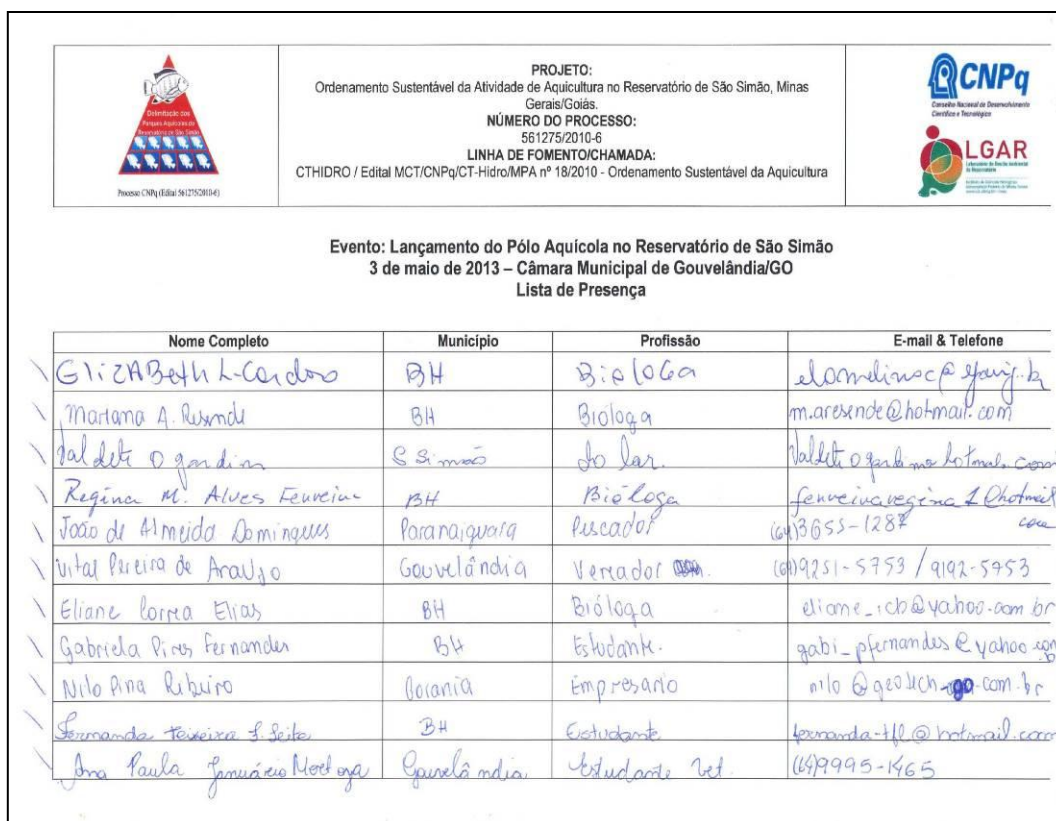 Delimitação dos
Parques Aquícolas do
Reservatório de São Simão
Processo CNPq (Edital 561275/2010-6)
PROJETO:
Ordenamento Sustentável da Atividade de Aquicultura no Reservatório de São Simão, Minas
Gerais/Goiás.
NÚMERO DO PROCESSO:
561275/2010-6
LINHA DE FOMENTO/CHAMADA:
CTHIDRO / Edital MCT/CNPq/CT-Hidro/MPA nº 18/2010 - Ordenamento Sustentável da Aquicultura
CNPq
Conselho Nacional de Desenvolvimento
Científico e Tecnológico
LGAR
Laboratório de Gestão Ambiental
de Reservatório
Evento: Lançamento do Pólo Aquícola no Reservatório de São Simão
3 de maio de 2013 – Câmara Municipal de Gouvelândia/GO
Lista de Presença
Nome Completo Município Profissão E-mail & Telefone
ElizABeth L. Cardoso BH BioloGa
Mariana A. Resende BH Bióloga m.aresende@hotmail.com
Valdete O gardin S Simão do lar.
Regina M. Alves Ferreira BH Bióloga ferreiraregina1@hotmail
com
João de Almeida Domingues Paranaiguara Pescador (64)3655-1287
Vital Pereira de Araujo Gouvelândia Vereador (64)9251-5753 / 9192-5953
Eliane Correa Elias BH Bióloga eliane_icb@yahoo.com.br
Gabriela Pires Fernandes BH Estudante. gabi_pfernandes@yahoo.com
Nilo Pina Ribeiro Goiania Empresario
Fernanda Teixeira F. Leite BH Estudante fernanda-tfl@hotmail.com
Ana Paula Januário Gouvelândia Estudante Vet. (64)9995-1465